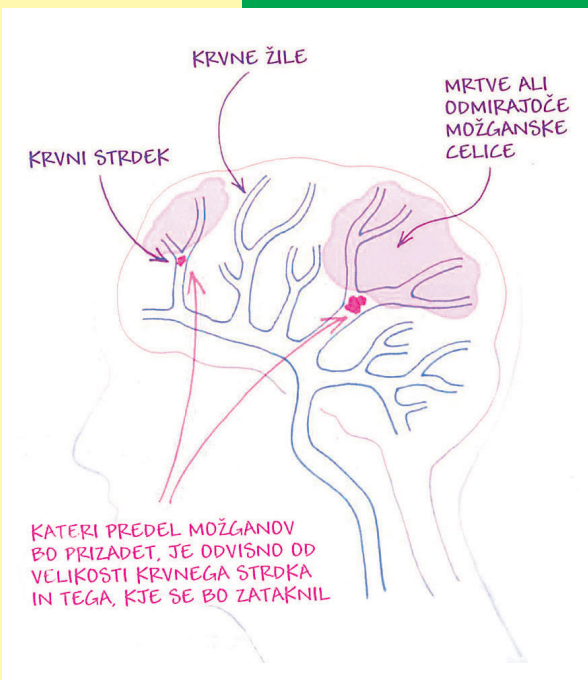 KRVNE ŽILE
MRTVE ALI
ODMIRAJOČE
MOŽGANSKE
CELICE
KRVNI STRDEK
KATERI PREDEL MOŽGANOV
BO PRIZADET, JE ODVISNO OD
VELIKOSTI KRVNEGA STRDKA
IN TEGA, KJE SE BO ZATAKNIL